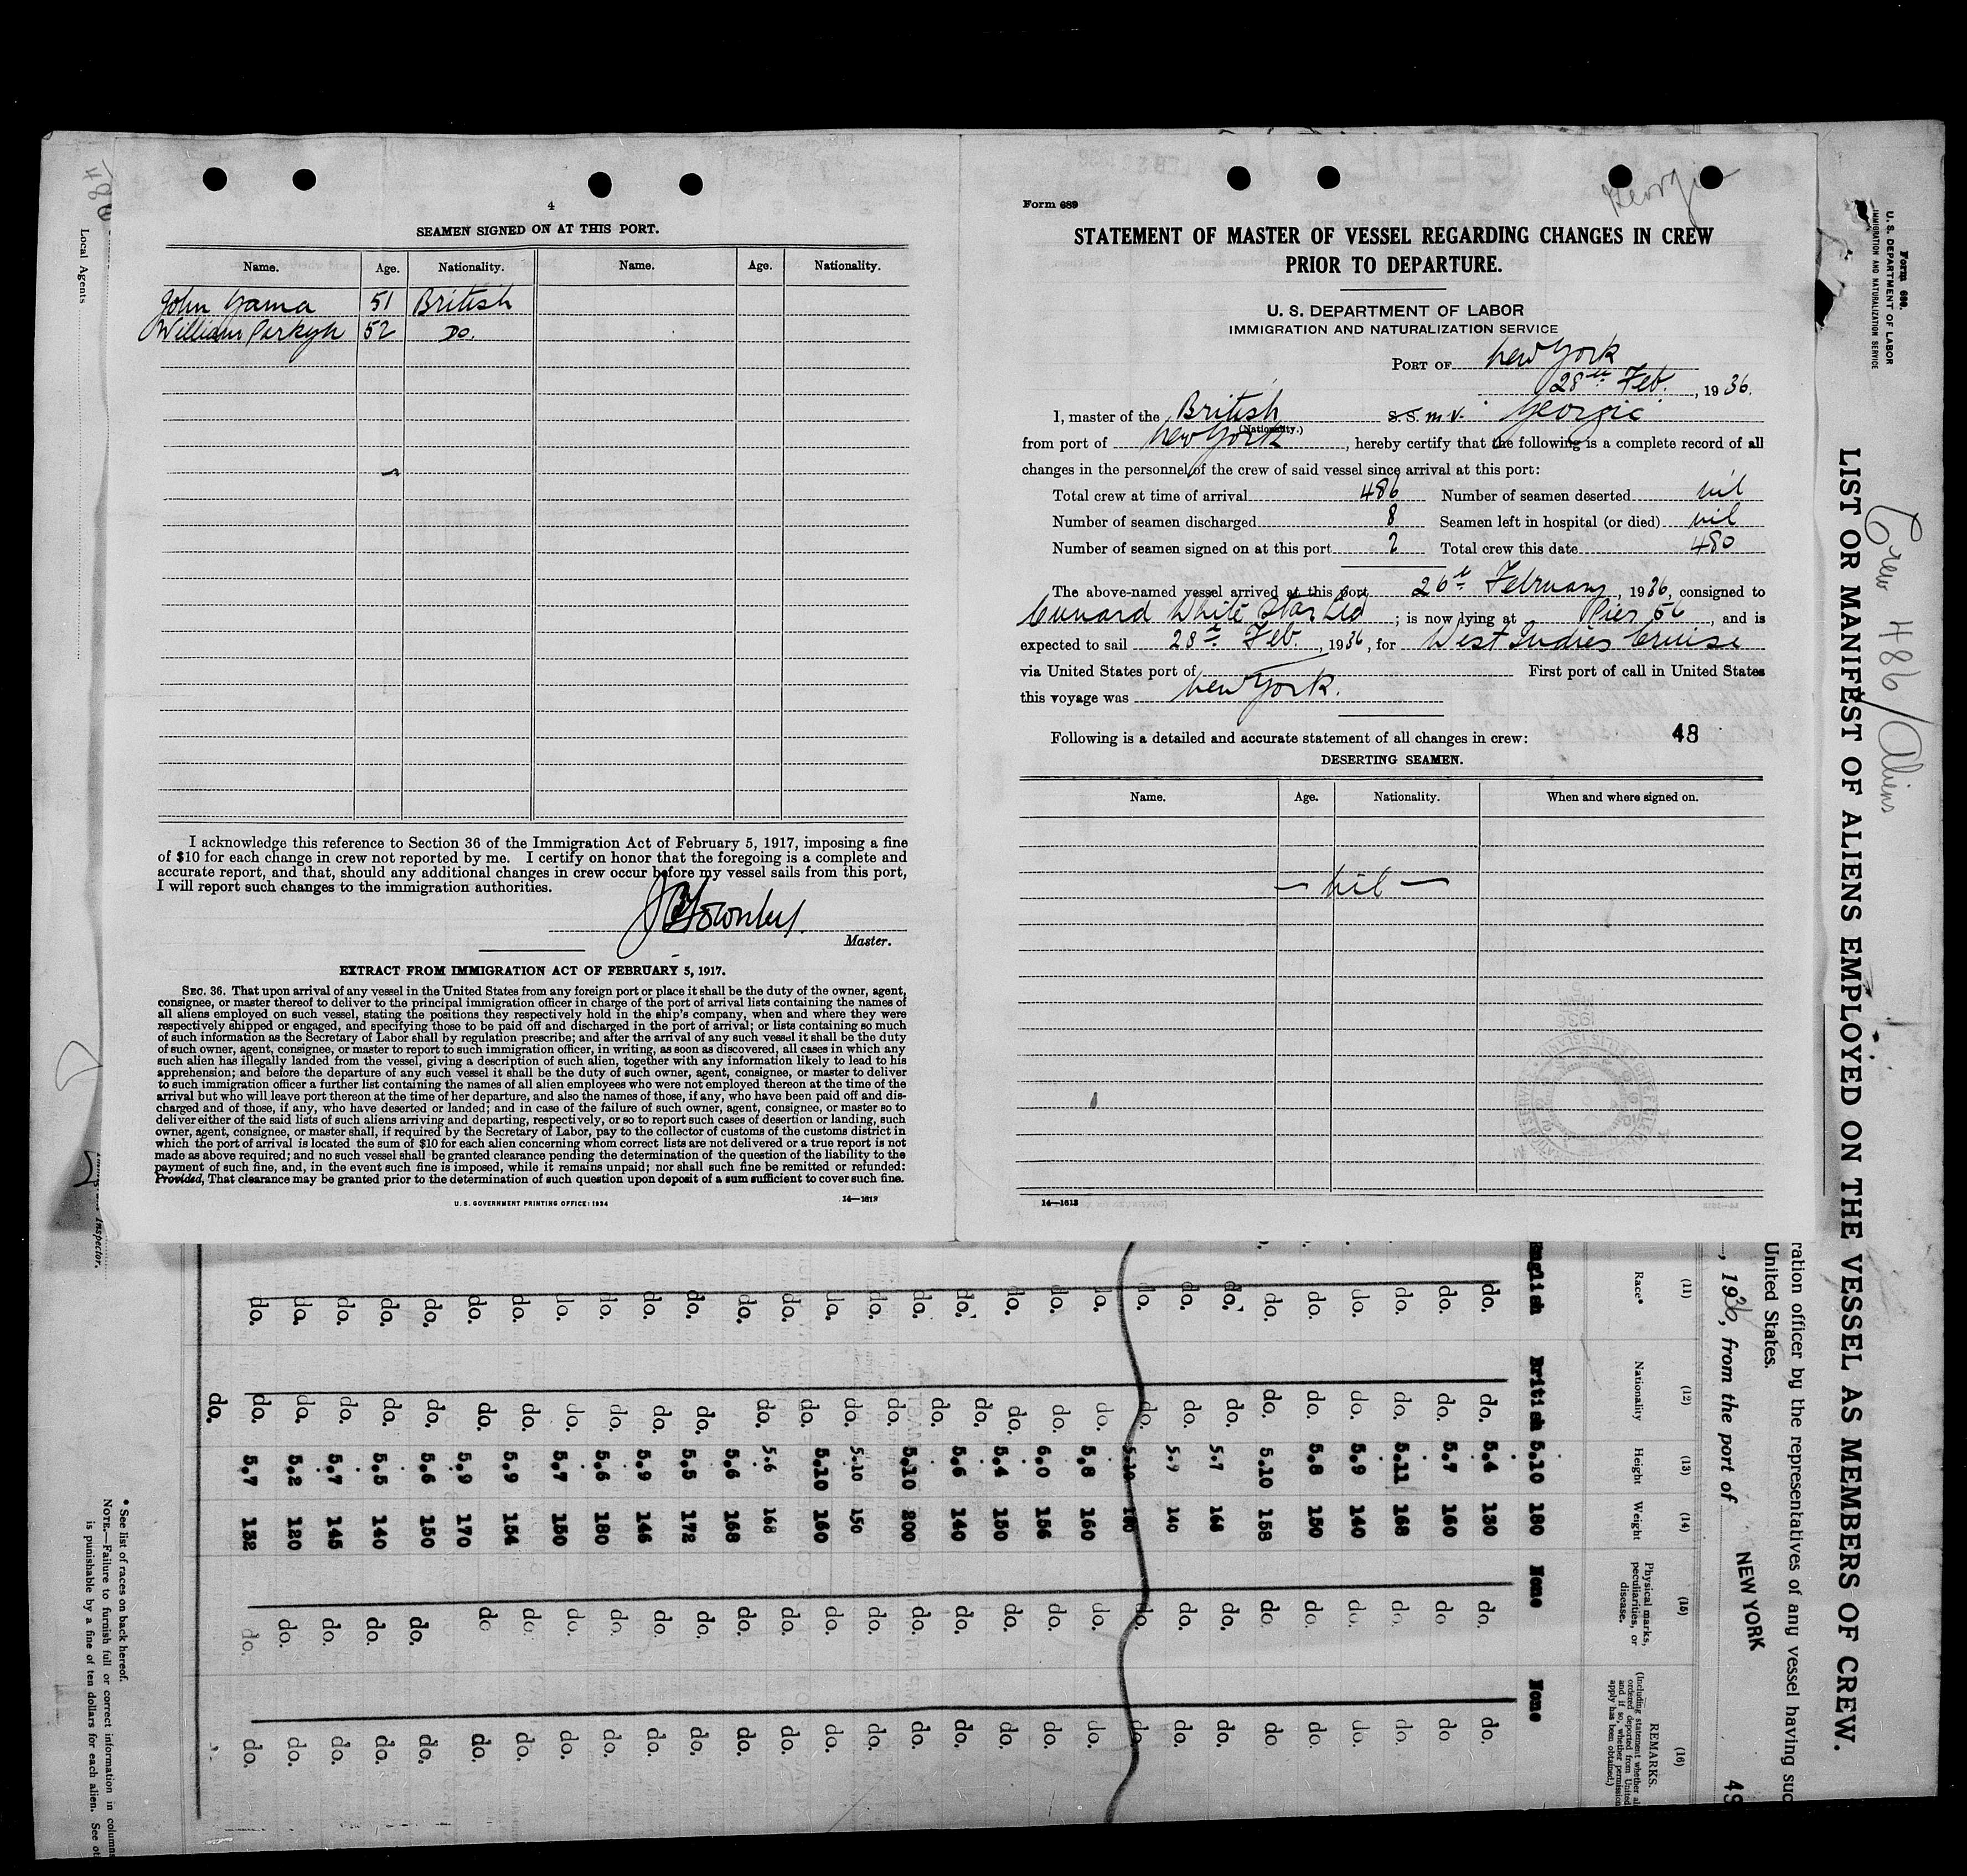 4
SEAMEN SIGNED ON AT THIS PORT.
Name. Age. Nationality. Name. Age. Nationality.
John 51 British
William 52 Do.
I acknowledge this reference to Section 36 of the Immigration Act of February 5, 1917, imposing a fine
of $10 for each change in crew not reported by me. I certify on honor that the foregoing is a complete and
accurate report, and that, should any additional changes in crew occur before my vessel sails from this port,
I will report such changes to the immigration authorities.
Master.
EXTRACT FROM IMMIGRATION ACT OF FEBRUARY 5, 1917.
SEC. 36. That upon arrival of any vessel in the United States from any foreign port or place it shall be the duty of the owner, agent,
consignee, or master thereof to deliver to the principal immigration officer in charge of the port of arrival lists containing the names of
all aliens employed on such vessel, stating the positions they respectively hold in the ship's company, when and where they were
respectively shipped or engaged, and specifying those to be paid off and discharged in the port of arrival; or lists containing so much
of such information as the Secretary of Labor shall by regulation prescribe; and after the arrival of any such vessel it shall be the duty
of such owner, agent, consignee, or master to report to such immigration officer, in writing, as soon as discovered, all cases in which any
such alien has illegally landed from the vessel, giving a description of such alien, together with any information likely to lead to his
apprehension; and before the departure of any such vessel it shall be the duty of such owner, agent, consignee, or master to deliver
to such immigration officer a further list containing the names of all alien employees who were not employed thereon at the time of the
arrival but who will leave port thereon at the time of her departure, and also the names of those, if any, who have been paid off and dis-
charged and of those, if any, who have deserted or landed; and in case of the failure of such owner, agent, consignee, or master so to
deliver either of the said lists of such aliens arriving and departing, respectively, or so to report such cases of desertion or landing, such
owner, agent, consignee, or master shall, if required by the Secretary of Labor, pay to the collector of customs of the customs district in
which the port of arrival is located the sum of $10 for each alien concerning whom correct lists are not delivered or a true report is not
made as above required; and no such vessel shall be granted clearance pending the determination of the question of the liability to the
payment of such fine, and, in the event such fine is imposed, while it remains unpaid; nor shall such fine be remitted or refunded:
Provided, That clearance may be granted prior to the determination of such question upon deposit of a sum sufficient to cover such fine.
U. S. GOVERNMENT PRINTING OFFICE: 1934
14—1613
Georgic
Form 689
STATEMENT OF MASTER OF VESSEL REGARDING CHANGES IN CREW
PRIOR TO DEPARTURE.
U. S. DEPARTMENT OF LABOR
IMMIGRATION AND NATURALIZATION SERVICE
PORT OF New York
28th Feb., 1936.
I, master of the British S.S. m.v. "Georgic"
(Nationality.)
from port of New York, hereby certify that the following is a complete record of all
changes in the personnel of the crew of said vessel since arrival at this port:
Total crew at time of arrival 486 Number of seamen deserted nil
Number of seamen discharged 8 Seamen left in hospital (or died) nil
Number of seamen signed on at this port 2 Total crew this date 480
The above-named vessel arrived at this port 26th February, 1936, consigned to
Cunard White Star Ltd; is now lying at Pier 56, and is
expected to sail 28th Feb., 1936, for West Indies Cruise
via United States port of — First port of call in United States
this voyage was New York.
Following is a detailed and accurate statement of all changes in crew: 48
DESERTING SEAMEN.
Name. Age. Nationality. When and where signed on.
— nil —
14—1613
Form 689.
U. S. DEPARTMENT OF LABOR
IMMIGRATION AND NATURALIZATION SERVICE
Crew 486/Aliens
LIST OR MANIFEST OF ALIENS EMPLOYED ON THE VESSEL AS MEMBERS OF CREW.
ration officer by the representatives of any vessel having suc
United States.
, 1936, from the port of NEW YORK
49
(11) (12) (13) (14) (15) (16)
Race* Nationality Height Weight Physical marks, peculiarities, or disease. REMARKS.
English British 5.10 180 None None
do. do. 5.4 130 do. do.
do. do. 5.7 160 do do.
do. do. 5.11 168 do. do.
do. do. 5.9 140 do. do.
do. do. 5.8 150 do. do.
do. do. 5.10 158 do. do
do. do. 5.7 168 do. do.
do. do. 5.9 140 do. do.
do. do. 5.10 do. do.
do. do. 5.8 160 do. do.
do. do. 6.0 156 do. do.
do. do. 5.4 150 do. do.
do. do. 5.6 140 do. do.
do. do. 5.10 200 do. do.
do. do. 5.10 150 do. do.
do. do. 5.10 160 do. do.
do. do. 5.6 168 do. do.
do. do. 5.6 168 do. do.
do. do. 5.5 172 do. do.
do. do. 5.9 146 do. do.
do. do. 5.6 180 do. do.
do. do. 5.7 150 do. do.
do. do. 5.9 154 do. do.
do. do. 5.9 170 do do.
do. do. 5.6 150 do. do.
do. do. 5.5 140 do. do.
do. do. 5.7 145 do. do.
do. do. 5.2 120 do. do.
do. do. 5.7 132 do. do.
do.
* See list of races on back hereof.
NOTE.—Failure to furnish full or correct information in columns
is punishable by a fine of ten dollars for each alien. See ot
Local Agents
Inspector.